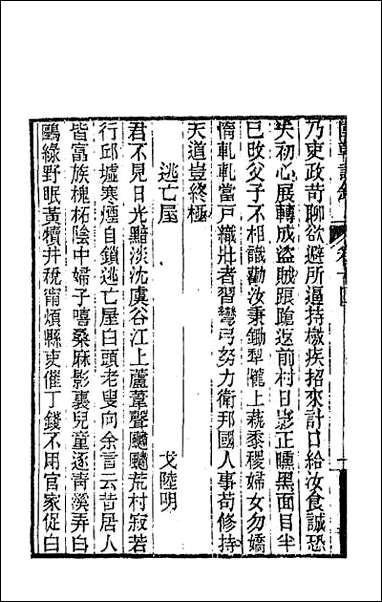 國朝詩鐸 卷十四
乃吏政苛聊欲避所逼持檄疾招來計口給汝食誠恐
失初心展轉成盜賊踉蹌返前村日影正曛黑面目半
已改父子不相識勸汝秉鋤犁隴上蓺黍稷婦女勿嬌
惰軋軋當戶織壯者習彎弓努力衛邦國人事苟修持
天道豈終極
逃亡屋 戈陸明
君不見日光黯淡沈虞谷江上蘆葦聲颼颼荒村寂若
行邱墟寒煙自鎖逃亡屋白頭老叟向余言云昔居人
皆富族槐柘陰中婦子嘻桑麻影裏兒童逐靑溪弄白
鷗綠野眠黃犢井稅甯煩縣吏催丁錢不用官家促白